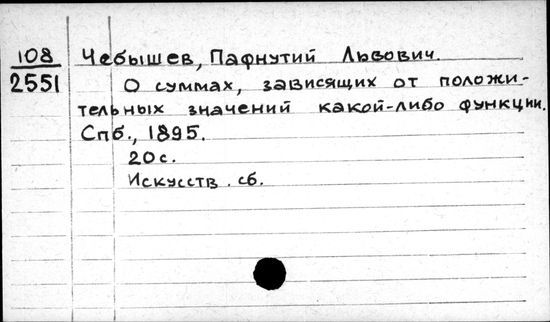 108 Чебышев, Пафнутий Львович.
2551 О суммах, зависящих от положи-
тельных значений какой-либо функции.
Спб., 1895.
20 с.
Искусств. сб.